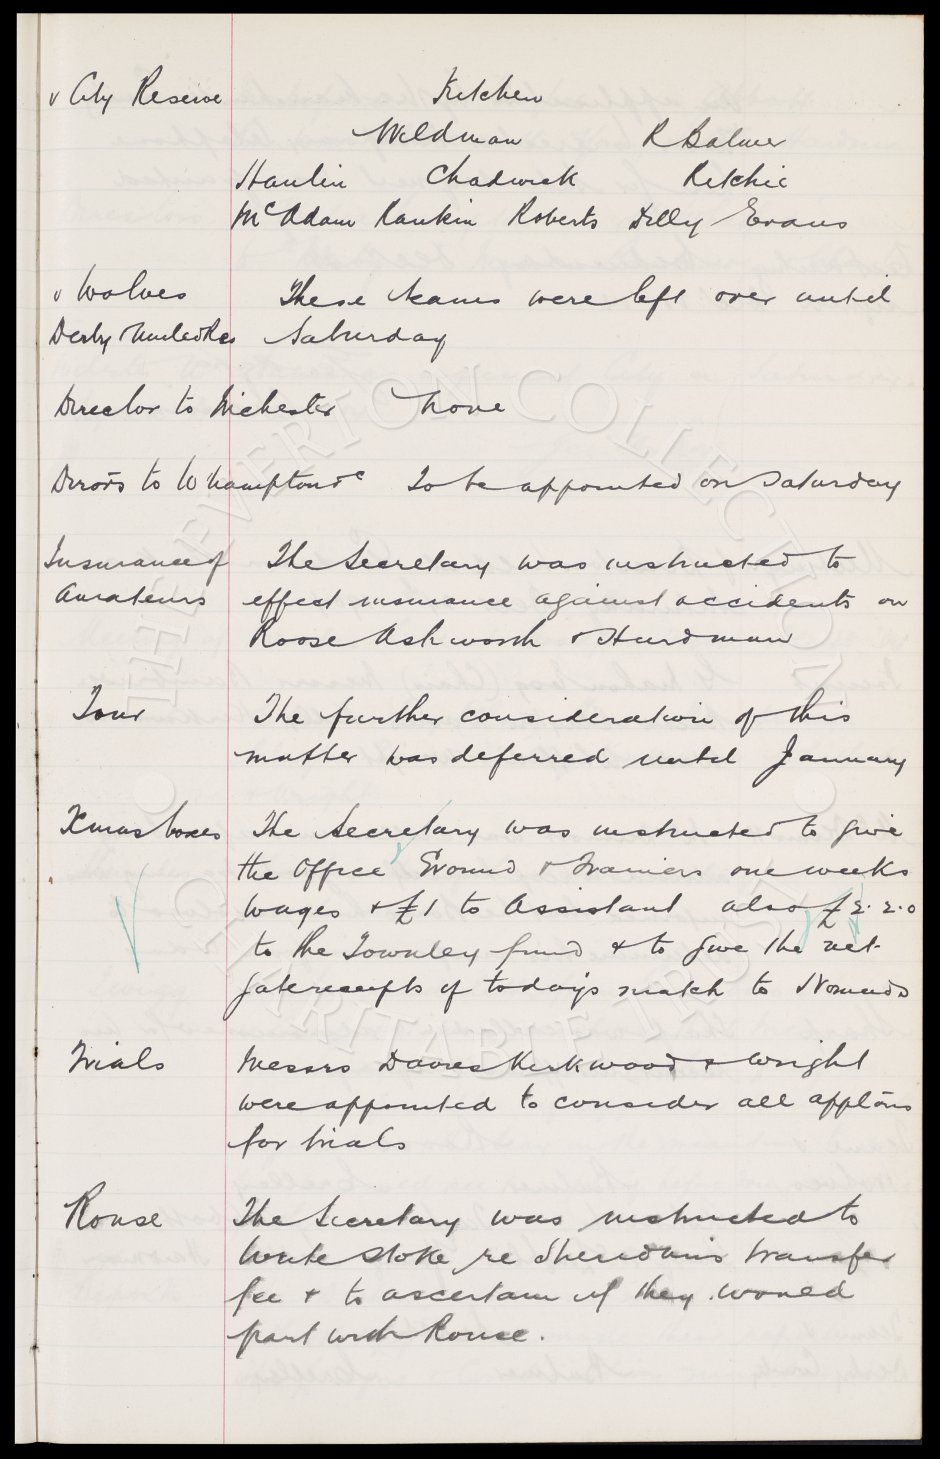 v City Reserve Kitchen
Wildman R Balmer
Hanlin Chadwick Ritchie
McAdam Rankin Roberts Dilly Evans
v Wolves These teams were left over until
Derby Saturday
Director to Michester None
Dirors to Whampton &c To be appointed on Saturday
Insurance of The Secretary was instructed to
Amateurs effect insurance against accidents on
Roose Ashworth & Hardman
Tour The further consideration of this
matter was deferred until January
Xmas boxes The Secretary was instructed to give
the Office Ground & Trainers one weeks
wages & £1 to Assistant also £2.2.0
to the Townley fund & to give the net
gate receipts of todays match to Nomads
Trials Messrs Davies Kirkwood & Wright
were appointed to consider all applōns
for trials
Rouse The Secretary was instructed to
write Stoke re Sheridans transfer
fee & to ascertain if they would
part with Rouse.
THE EVERTON COLLECTION CHARITABLE TRUST